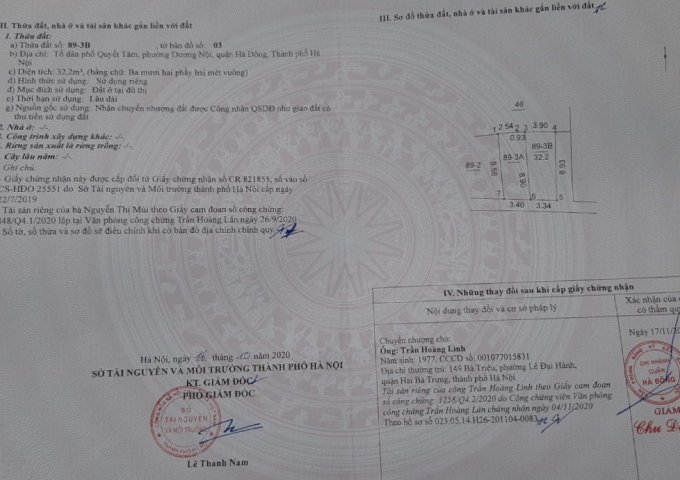 II. Thửa đất, nhà ở và tài sản khác gắn liền với đất
1. Thửa đất:
a) Thửa đất số: 89-3B , tờ bản đồ số: 03
b) Địa chỉ: Tổ dân phố Quyết Tâm, phường Dương Nội, quận Hà Đông, Thành phố Hà
Nội
c) Diện tích: 32,2m², (bằng chữ: Ba mươi hai phẩy hai mét vuông)
d) Hình thức sử dụng: Sử dụng riêng
đ) Mục đích sử dụng: Đất ở tại đô thị
e) Thời hạn sử dụng: Lâu dài
g) Nguồn gốc sử dụng: Nhận chuyển nhượng đất được Công nhận QSDĐ như giao đất có
thu tiền sử dụng đất
2. Nhà ở: -/-
3. Công trình xây dựng khác: -/-
. Rừng sản xuất là rừng trồng: -/-
. Cây lâu năm: -/-
Ghi chú:
- Giấy chứng nhận này được cấp đổi từ Giấy chứng nhận số CR 821855, số vào sổ
CS-HĐO 25551 do Sở Tài nguyên và Môi trường thành phố Hà Nội cấp ngày
22/7/2019
Tài sản riêng của bà Nguyễn Thị Mùi theo Giấy cam đoan số công chứng:
448/Q4.1/2020 lập tại Văn phòng công chứng Trần Hoàng Lân ngày 26/9/2020
Số tờ, số thửa và sơ đồ sẽ điều chỉnh khi có bản đồ địa chính chính quy
Hà Nội, ngày 16 tháng 10 năm 2020
SỞ TÀI NGUYÊN VÀ MÔI TRƯỜNG THÀNH PHỐ HÀ NỘI
KT. GIÁM ĐỐC
PHÓ GIÁM ĐỐC
SỞ
TÀI NGUYÊN
VÀ MÔI TRƯỜNG
Lê Thanh Nam
III. Sơ đồ thửa đất, nhà ở và tài sản khác gắn liền với đất
46
1 2.54 2 3 3.90 4
0.93
89-3B
89-2 8.56 89-3A 32.2 8.93
8.90
7 6 5
3.40 3.34
IV. Những thay đổi sau khi cấp giấy chứng nhận
Nội dung thay đổi và cơ sở pháp lý
Xác nhận của
có thẩm quy
Chuyển nhượng cho:
Ông: Trần Hoàng Linh
Năm sinh: 1977, CCCD số: 001077015831
Địa chỉ thường trú: 149 Bà Triệu, phường Lê Đại Hành,
quận Hai Bà Trưng, thành phố Hà Nội
Tài sản riêng của công Trần Hoàng Linh theo Giấy cam đoan
số công chứng: 1258/Q4.2/2020 do Công chứng viên Văn phòng
công chứng Trần Hoàng Lân chứng nhận ngày 04/11/2020
Theo hồ sơ số 023.05.14.H26-201104-0083
Ngày 17/11/
CHI NHÁNH
QUẬN
HÀ ĐÔNG
GIÁM
Chu